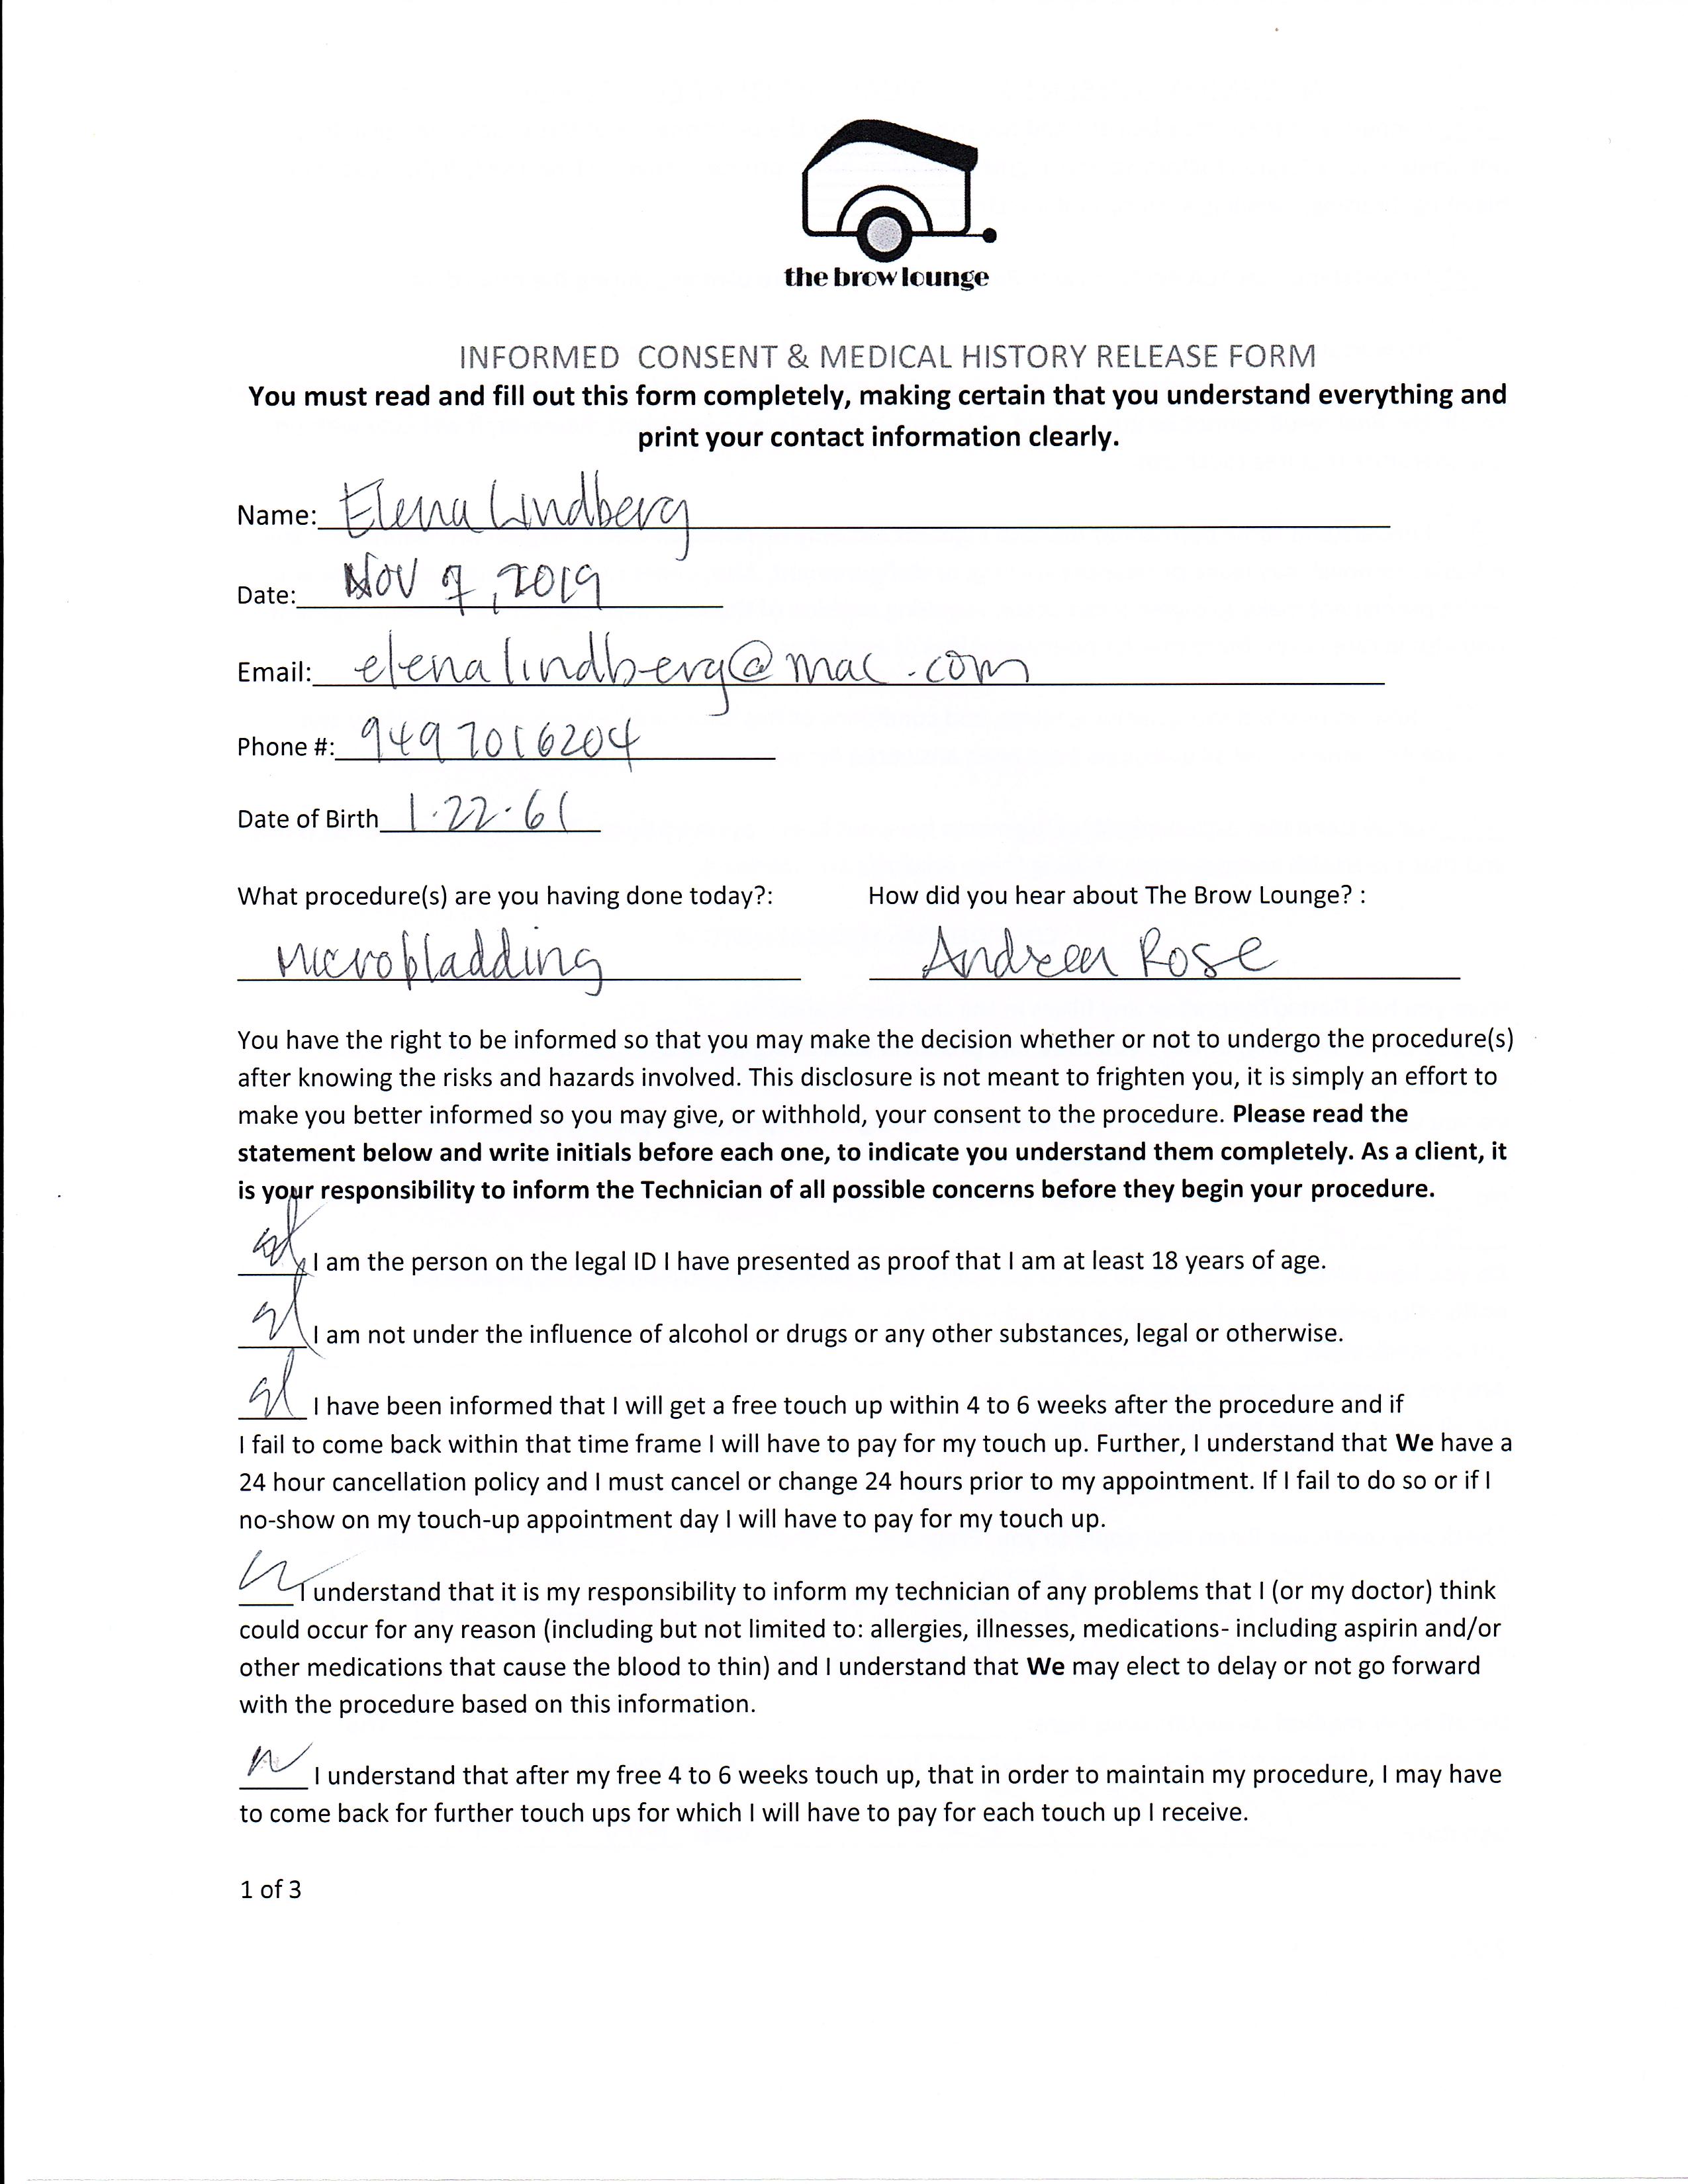 the brow lounge
INFORMED CONSENT & MEDICAL HISTORY RELEASE FORM
You must read and fill out this form completely, making certain that you understand everything and
print your contact information clearly.
Name: Elena Lindberg
Date: Nov 7, 2019
Email: elenalindberg@mac.com
Phone #: 9497016204
Date of Birth 1.22.61
What procedure(s) are you having done today?: How did you hear about The Brow Lounge? :
Microbladding Andrea Rose
You have the right to be informed so that you may make the decision whether or not to undergo the procedure(s)
after knowing the risks and hazards involved. This disclosure is not meant to frighten you, it is simply an effort to
make you better informed so you may give, or withhold, your consent to the procedure. Please read the
statement below and write initials before each one, to indicate you understand them completely. As a client, it
is your responsibility to inform the Technician of all possible concerns before they begin your procedure.
I am the person on the legal ID I have presented as proof that I am at least 18 years of age.
I am not under the influence of alcohol or drugs or any other substances, legal or otherwise.
I have been informed that I will get a free touch up within 4 to 6 weeks after the procedure and if
I fail to come back within that time frame I will have to pay for my touch up. Further, I understand that We have a
24 hour cancellation policy and I must cancel or change 24 hours prior to my appointment. If I fail to do so or if I
no-show on my touch-up appointment day I will have to pay for my touch up.
I understand that it is my responsibility to inform my technician of any problems that I (or my doctor) think
could occur for any reason (including but not limited to: allergies, illnesses, medications- including aspirin and/or
other medications that cause the blood to thin) and I understand that We may elect to delay or not go forward
with the procedure based on this information.
I understand that after my free 4 to 6 weeks touch up, that in order to maintain my procedure, I may have
to come back for further touch ups for which I will have to pay for each touch up I receive.
1 of 3